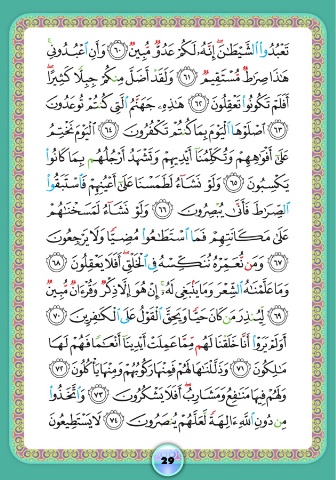 تَعْبُدُوا۟ ٱلشَّيْطَٰنَ ۖ إِنَّهُۥ لَكُمْ عَدُوٌّ مُّبِينٌ ٦٠ وَأَنِ ٱعْبُدُونِى ۚ
هَٰذَا صِرَٰطٌ مُّسْتَقِيمٌ ٦١ وَلَقَدْ أَضَلَّ مِنكُمْ جِبِلًّا كَثِيرًا ۖ
أَفَلَمْ تَكُونُوا۟ تَعْقِلُونَ ٦٢ هَٰذِهِۦ جَهَنَّمُ ٱلَّتِى كُنتُمْ تُوعَدُونَ
٦٣ ٱصْلَوْهَا ٱلْيَوْمَ بِمَا كُنتُمْ تَكْفُرُونَ ٦٤ ٱلْيَوْمَ نَخْتِمُ
عَلَىٰٓ أَفْوَٰهِهِمْ وَتُكَلِّمُنَآ أَيْدِيهِمْ وَتَشْهَدُ أَرْجُلُهُم بِمَا كَانُوا۟
يَكْسِبُونَ ٦٥ وَلَوْ نَشَآءُ لَطَمَسْنَا عَلَىٰٓ أَعْيُنِهِمْ فَٱسْتَبَقُوا۟
ٱلصِّرَٰطَ فَأَنَّىٰ يُبْصِرُونَ ٦٦ وَلَوْ نَشَآءُ لَمَسَخْنَٰهُمْ
عَلَىٰ مَكَانَتِهِمْ فَمَا ٱسْتَطَٰعُوا۟ مُضِيًّا وَلَا يَرْجِعُونَ
٦٧ وَمَن نُّعَمِّرْهُ نُنَكِّسْهُ فِى ٱلْخَلْقِ ۖ أَفَلَا يَعْقِلُونَ ٦٨
وَمَا عَلَّمْنَٰهُ ٱلشِّعْرَ وَمَا يَنۢبَغِى لَهُۥٓ ۚ إِنْ هُوَ إِلَّا ذِكْرٌ وَقُرْءَانٌ مُّبِينٌ
٦٩ لِّيُنذِرَ مَن كَانَ حَيًّا وَيَحِقَّ ٱلْقَوْلُ عَلَى ٱلْكَٰفِرِينَ ٧٠
أَوَلَمْ يَرَوْا۟ أَنَّا خَلَقْنَا لَهُم مِّمَّا عَمِلَتْ أَيْدِينَآ أَنْعَٰمًا فَهُمْ لَهَا
مَٰلِكُونَ ٧١ وَذَلَّلْنَٰهَا لَهُمْ فَمِنْهَا رَكُوبُهُمْ وَمِنْهَا يَأْكُلُونَ ٧٢
وَلَهُمْ فِيهَا مَنَٰفِعُ وَمَشَارِبُ ۖ أَفَلَا يَشْكُرُونَ ٧٣ وَٱتَّخَذُوا۟
مِن دُونِ ٱللَّهِ ءَالِهَةً لَّعَلَّهُمْ يُنصَرُونَ ٧٤ لَا يَسْتَطِيعُونَ
29